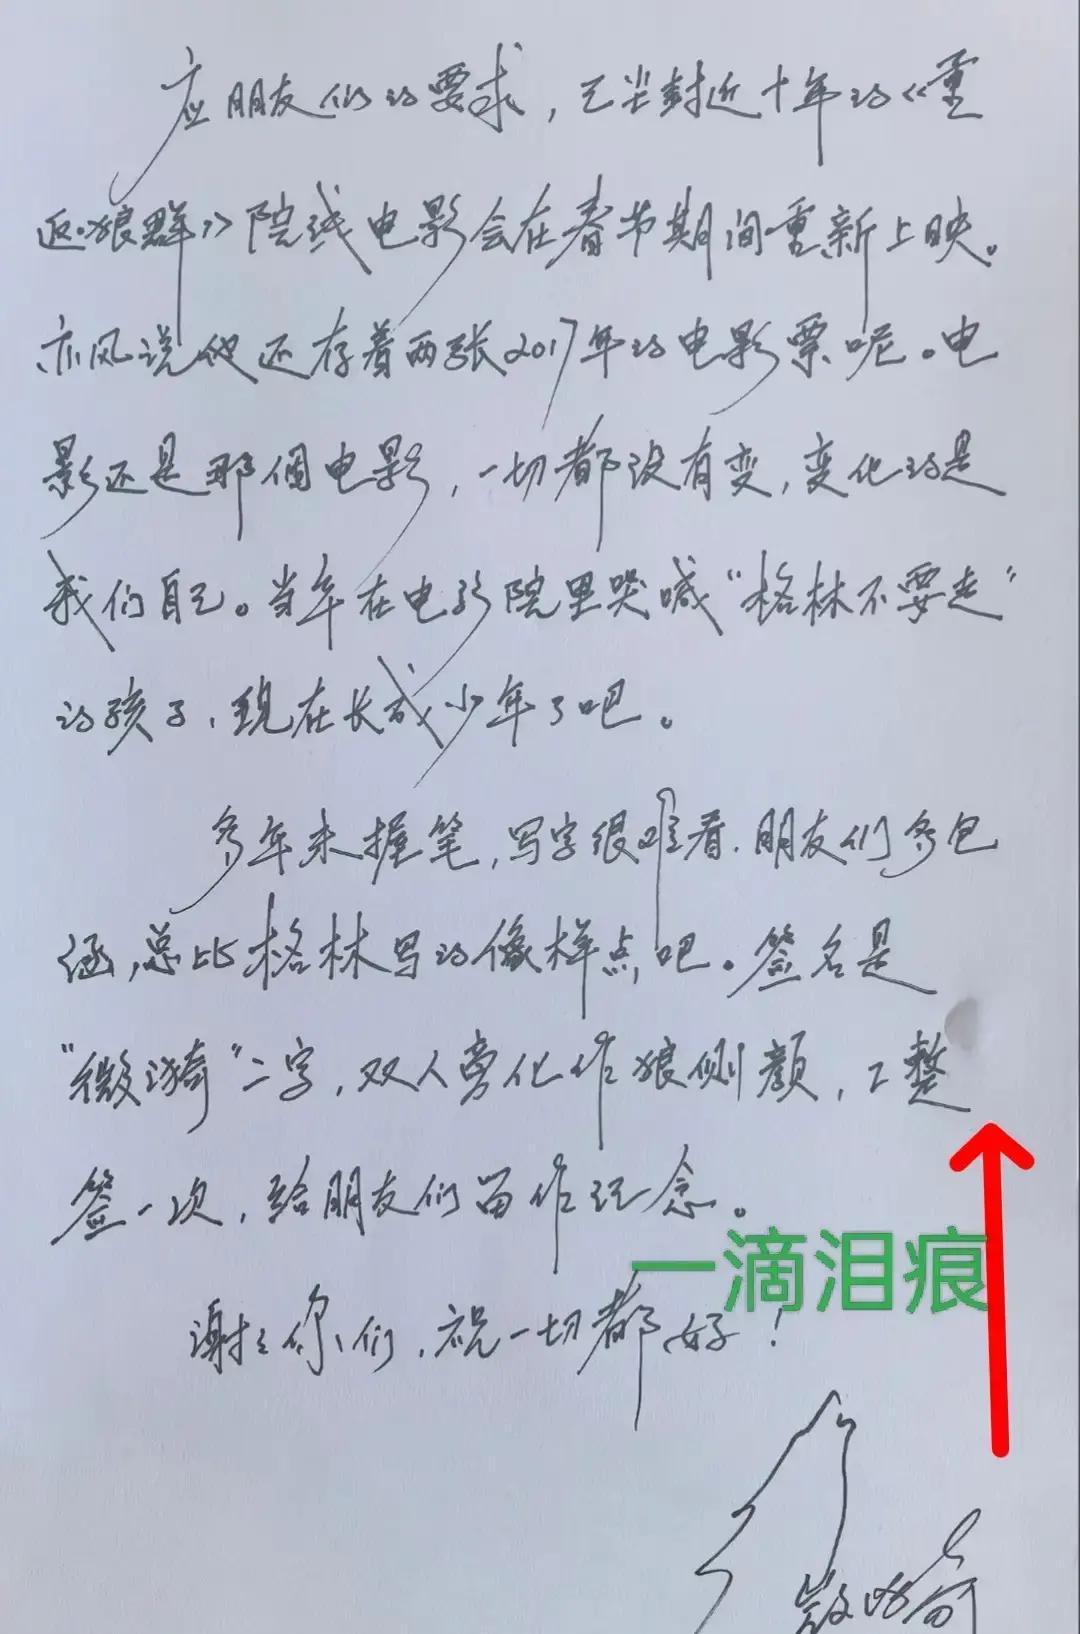 应朋友们的要求，已尘封近十年的《重
返狼群》院线电影会在春节期间重新上映。
亦风说他还存着两张2017年的电影票呢。电
影还是那個电影，一切都没有变，变化的是
我们自己。当年在电影院里哭喊“格林不要走”
的孩子，现在长成少年了吧。
多年未握笔，写字很难看，朋友们多包
涵，总比格林写的像样点吧。签名是
“微漪”二字，双人旁化作狼侧颜，工整
签一次，给朋友们留作记念。
一滴泪痕
谢谢你们，祝一切都好！
微漪